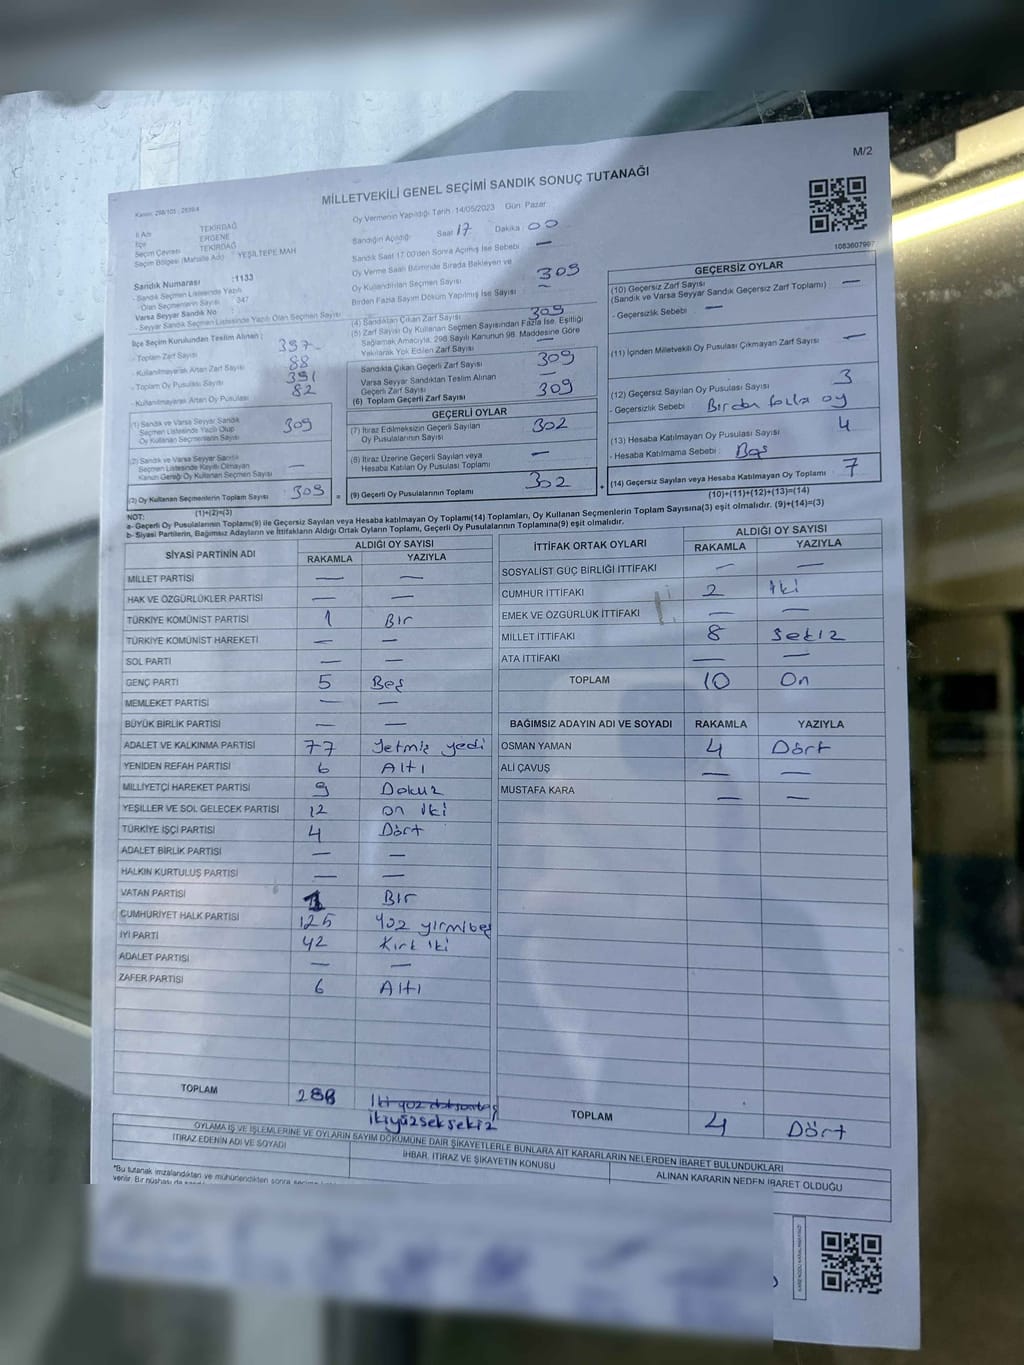 M/2
MİLLETVEKİLİ GENEL SEÇİMİ SANDIK SONUÇ TUTANAĞI
Oy Vermenin Yapıldığı Tarih :14/05/2023 Gün: Pazar
İl Adı TEKİRDAĞ
İlçe ERGENE
Seçim Çevresi TEKİRDAĞ
Seçim Bölgesi (Mahalle Adı) YEŞİLTEPE MAH
Sandık Numarası :1133
- Sandık Seçmen Listesinde Yazılı
Olan Seçmenlerin Sayısı : 347
Varsa Seyyar Sandık No
- Seyyar Sandık Seçmen Listesinde Yazılı Olan Seçmen Sayısı
Sandığın Açıldığı Saat 17 Dakika 00
Sandık Saat 17.00'den Sonra Açılmış İse Sebebi —
Oy Verme Saati Bitiminde Sırada Bekleyen ve
Oy Kullandırılan Seçmen Sayısı 309
Birden Fazla Sayım Döküm Yapılmış İse Sayısı —
1083607997
İlçe Seçim Kurulundan Teslim Alınan :
- Toplam Zarf Sayısı 397
- Kullanılmayarak Artan Zarf Sayısı 88
- Toplam Oy Pusulası Sayısı 391
- Kullanılmayarak Artan Oy Pusulası 82
(1) Sandık ve Varsa Seyyar Sandık
Seçmen Listesinde Yazılı Olup
Oy Kullanan Seçmenlerin Sayısı 309
(2) Sandık ve Varsa Seyyar Sandık
Seçmen Listesinde Kayıtlı Olmayan
Kanun Gereği Oy Kullanan Seçmen Sayısı —
(3) Oy Kullanan Seçmenlerin Toplam Sayısı : 309
(1)+(2)=(3)
(4) Sandıktan Çıkan Zarf Sayısı 309
(5) Zarf Sayısı Oy Kullanan Seçmen Sayısından Fazla İse, Eşitliği
Sağlamak Amacıyla, 298 Sayılı Kanunun 98. Maddesine Göre
Yakılarak Yok Edilen Zarf Sayısı —
Sandıkta Çıkan Geçerli Zarf Sayısı 309
Varsa Seyyar Sandıktan Teslim Alınan
Geçerli Zarf Sayısı —
(6) Toplam Geçerli Zarf Sayısı 309
GEÇERLİ OYLAR
(7) İtiraz Edilmeksizin Geçerli Sayılan
Oy Pusulalarının Sayısı 302
(8) İtiraz Üzerine Geçerli Sayılan veya
Hesaba Katılan Oy Pusulası Toplamı —
= (9) Geçerli Oy Pusulalarının Toplamı 302 +
GEÇERSİZ OYLAR
(10) Geçersiz Zarf Sayısı —
(Sandık ve Varsa Seyyar Sandık Geçersiz Zarf Toplamı)
- Geçersizlik Sebebi : —
(11) İçinden Milletvekili Oy Pusulası Çıkmayan Zarf Sayısı —
(12) Geçersiz Sayılan Oy Pusulası Sayısı 3
- Geçersizlik Sebebi : Birden fazla oy
(13) Hesaba Katılmayan Oy Pusulası Sayısı 4
- Hesaba Katılmama Sebebi : Boş
(14) Geçersiz Sayılan veya Hesaba Katılmayan Oy Toplamı 7
(10)+(11)+(12)+(13)=(14)
NOT:
a- Geçerli Oy Pusulalarının Toplamı(9) ile Geçersiz Sayılan veya Hesaba katılmayan Oy Toplamı(14) Toplamları, Oy Kullanan Seçmenlerin Toplam Sayısına(3) eşit olmalıdır. (9)+(14)=(3)
b- Siyasi Partilerin, Bağımsız Adayların ve İttifakların Aldığı Ortak Oyların Toplamı, Geçerli Oy Pusulalarının Toplamına(9) eşit olmalıdır.
SİYASİ PARTİNİN ADI ALDIĞI OY SAYISI
RAKAMLA YAZIYLA
MİLLET PARTİSİ — —
HAK VE ÖZGÜRLÜKLER PARTİSİ — —
TÜRKİYE KOMÜNİST PARTİSİ 1 Bir
TÜRKİYE KOMÜNİST HAREKETİ — —
SOL PARTİ — —
GENÇ PARTİ 5 Beş
MEMLEKET PARTİSİ — —
BÜYÜK BİRLİK PARTİSİ — —
ADALET VE KALKINMA PARTİSİ 77 Yetmiş yedi
YENİDEN REFAH PARTİSİ 6 Altı
MİLLİYETÇİ HAREKET PARTİSİ 9 Dokuz
YEŞİLLER VE SOL GELECEK PARTİSİ 12 on iki
TÜRKİYE İŞÇİ PARTİSİ 4 Dört
ADALET BİRLİK PARTİSİ — —
HALKIN KURTULUŞ PARTİSİ — —
VATAN PARTİSİ 1 Bir
CUMHURİYET HALK PARTİSİ 125 yüz yirmibeş
İYİ PARTİ 42 Kırk iki
ADALET PARTİSİ — —
ZAFER PARTİSİ 6 Altı
TOPLAM 288
ikiyüzseksekiz
İTTİFAK ORTAK OYLARI ALDIĞI OY SAYISI
RAKAMLA YAZIYLA
SOSYALİST GÜÇ BİRLİĞİ İTTİFAKI — —
CUMHUR İTTİFAKI 2 iki
EMEK VE ÖZGÜRLÜK İTTİFAKI — —
MİLLET İTTİFAKI 8 sekiz
ATA İTTİFAKI — —
TOPLAM 10 On
BAĞIMSIZ ADAYIN ADI VE SOYADI RAKAMLA YAZIYLA
OSMAN YAMAN 4 Dört
ALİ ÇAVUŞ — —
MUSTAFA KARA — —
TOPLAM 4 Dört
OYLAMA İŞ VE İŞLEMLERİNE VE OYLARIN SAYIM DÖKÜMÜNE DAİR ŞİKAYETLERLE BUNLARA AİT KARARLARIN NELERDEN İBARET BULUNDUKLARI
İTİRAZ EDENİN ADI VE SOYADI İHBAR, İTİRAZ VE ŞİKAYETİN KONUSU ALINAN KARARIN NEDEN İBARET OLDUĞU
*Bu tutanak imzalandıktan ve mühürlendikten sonra
verilir. Bir nüshası da